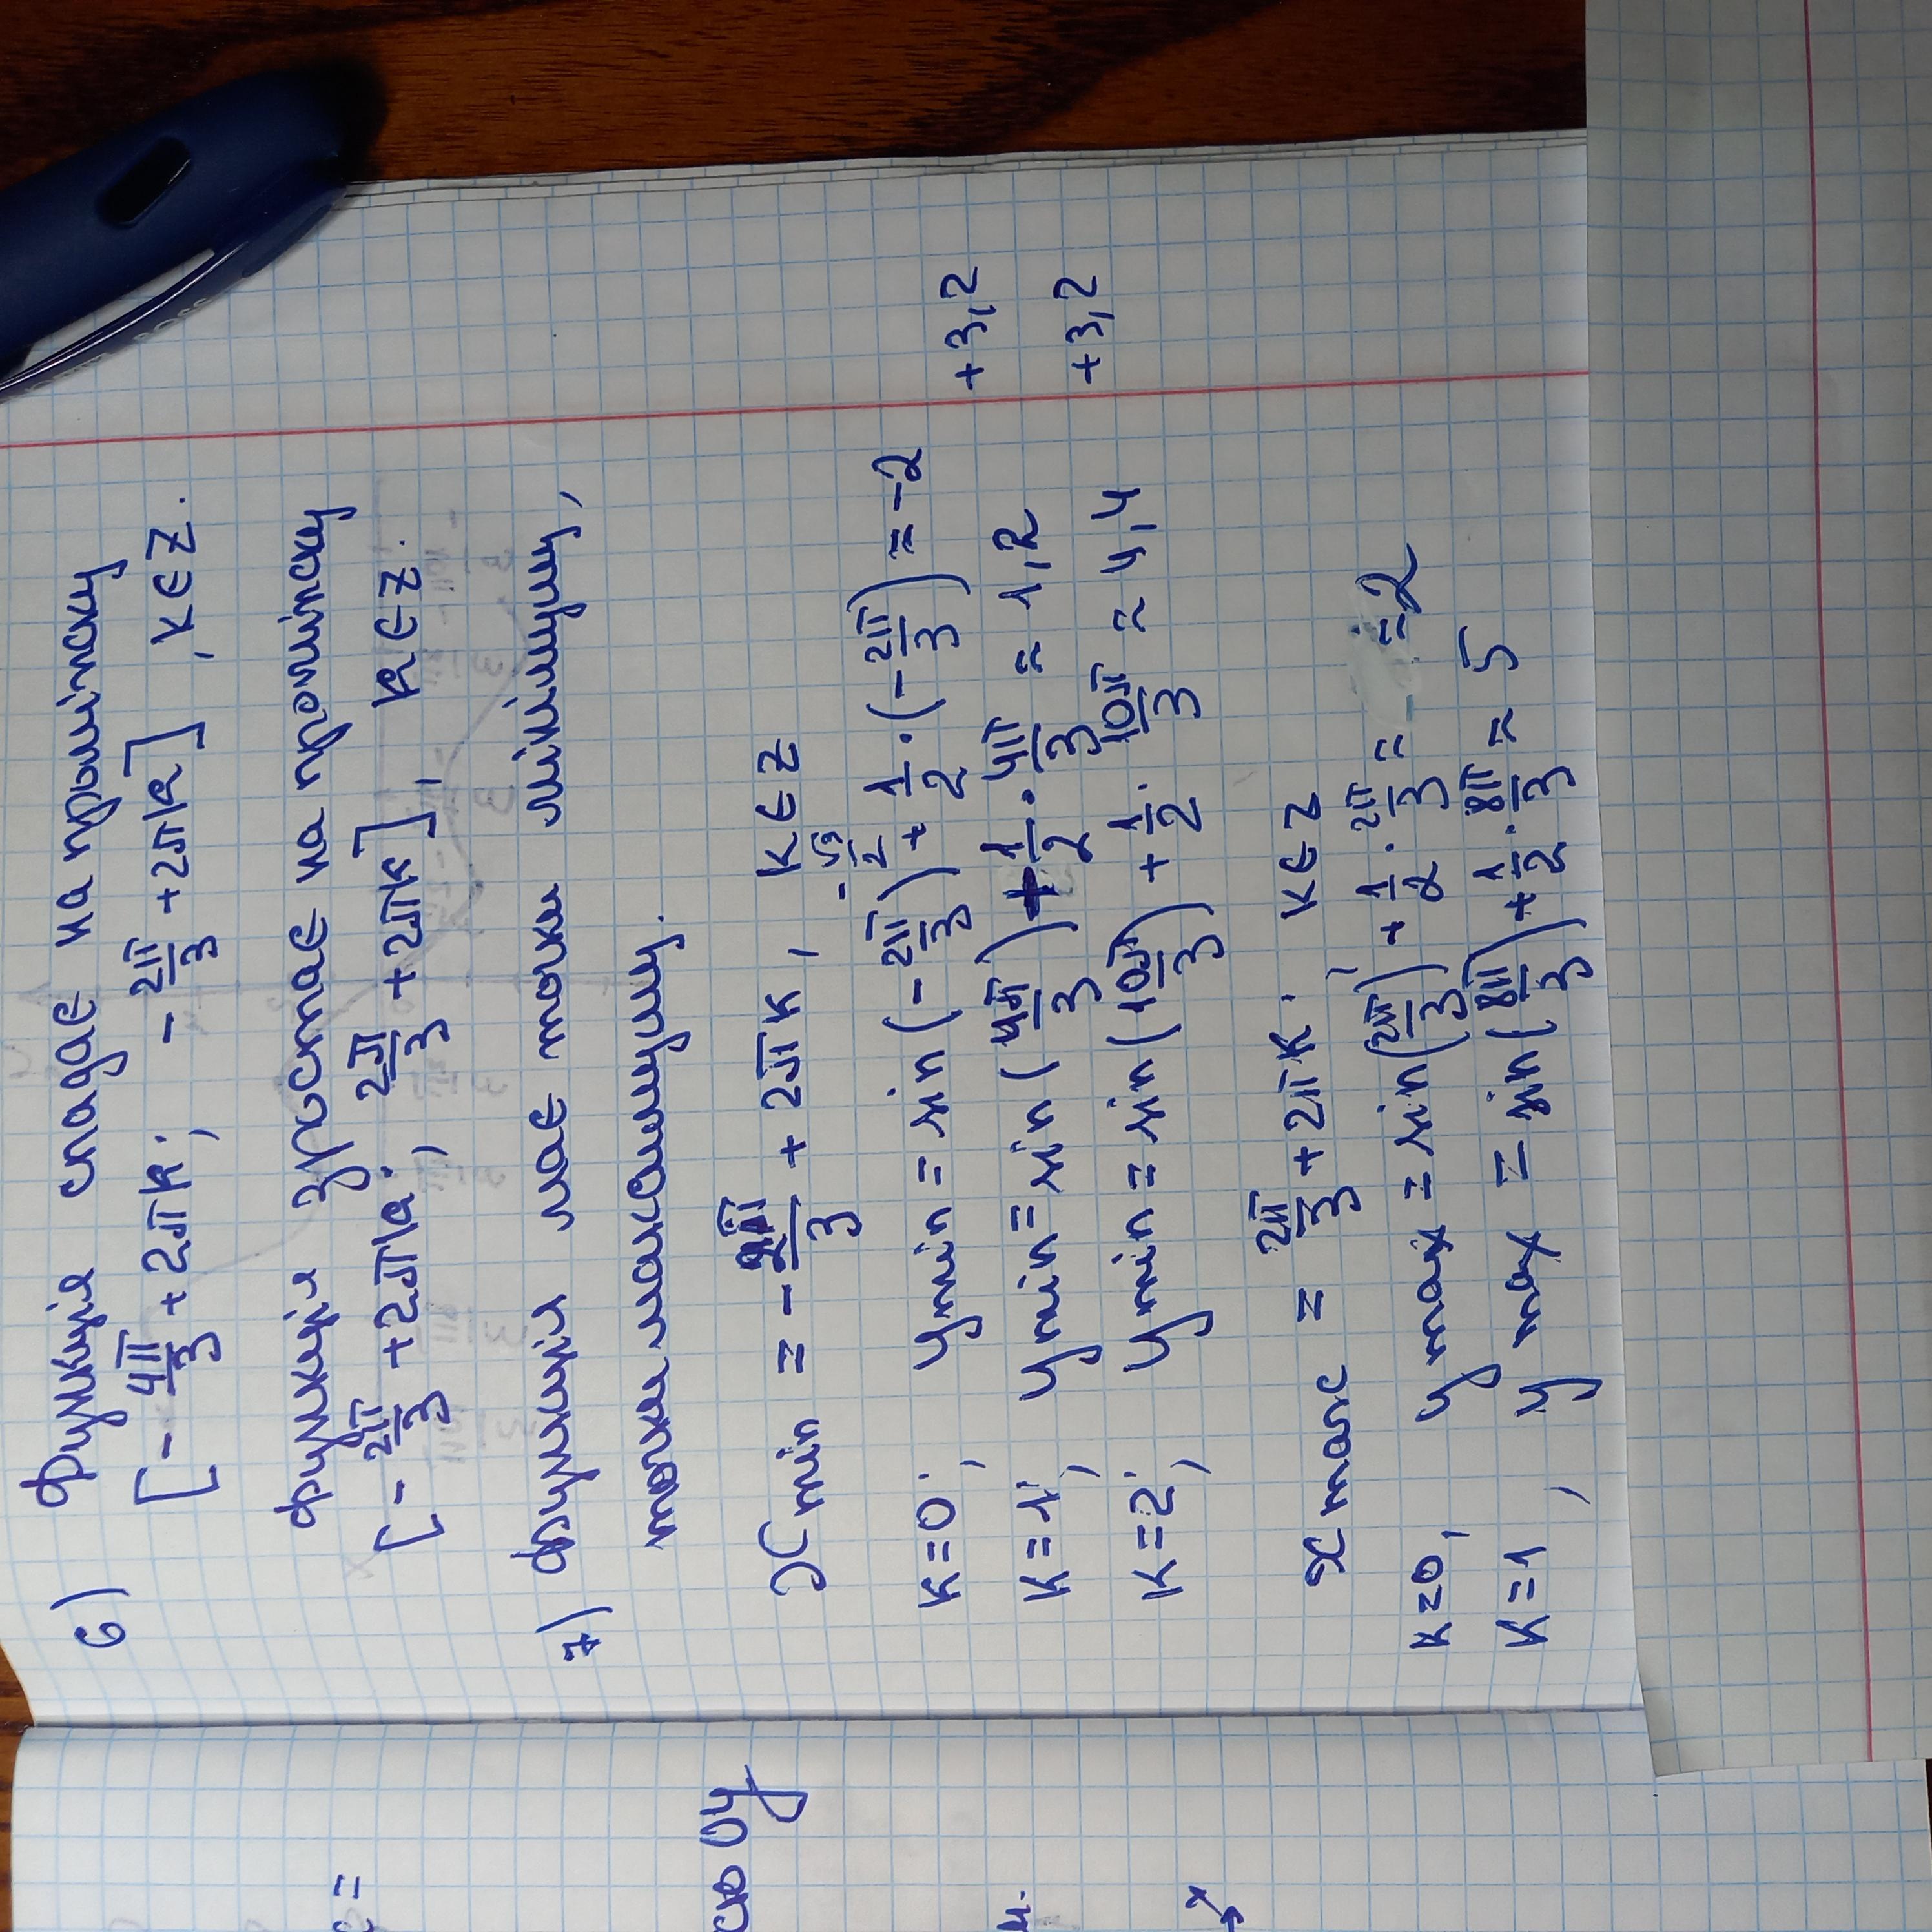 6) функція спадає на проміжку
[-4π/3 + 2πk; -2π/3 + 2πk], k∈Z.
функція зростає на проміжку
[-2π/3 + 2πk; 2π/3 + 2πk], k∈Z.
7) функція має точки мінімуму,
точки максимуму.
xmin = -2π/3 + 2πk, k∈Z
-√3/2
k=0; ymin = sin(-2π/3) + 1/2·(-2π/3) ≈ -2
+3,2
k=1; ymin = sin(4π/3) + 1/2·4π/3 ≈ 1,2
+3,2
k=2; ymin = sin(10π/3) + 1/2·10π/3 ≈ 4,4
xmax = 2π/3 + 2πk; k∈Z
k=0, ymax = sin(2π/3) + 1/2·2π/3 ≈ 2
k=1, ymax = sin(8π/3) + 1/2·8π/3 ≈ 5